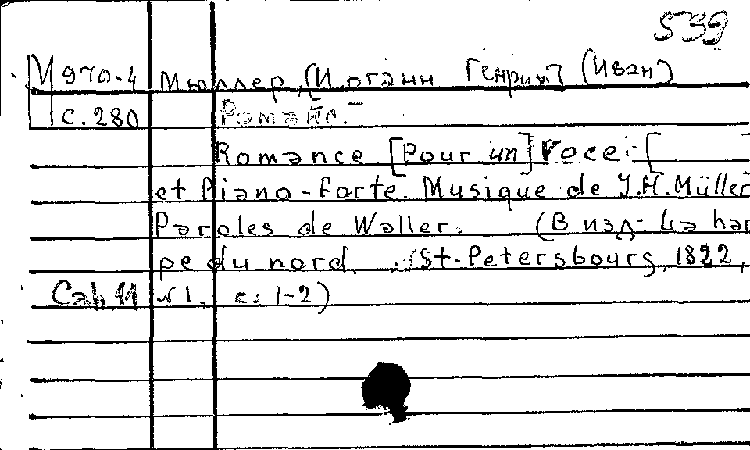 539
М 970.4 Мюллер, [Иоганн Генрих] (Иван)
с. 280 Романс.
Romance [Pour un] voce [
et Piano-Forte. Musique de J.H. Müller
Paroles de Waller. (В изд: La har
pe du nord. St.-Petersbourg, 1822,
Cah. 11 № 1. с. 1-2)